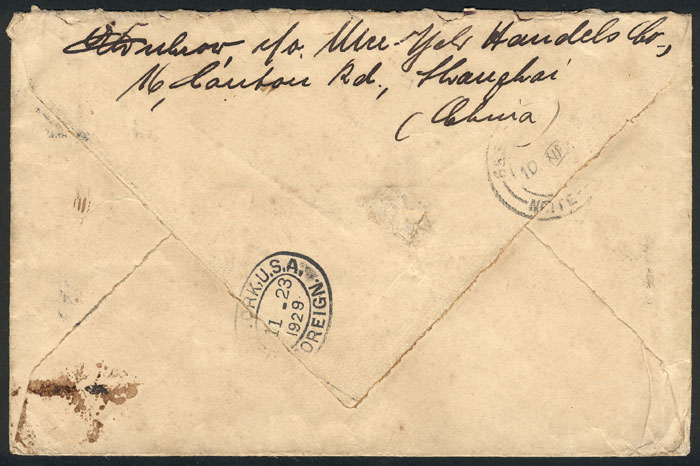 c/o. Mee-Yeh Handels Co.,
16, Canton Rd., Shanghai
(China)
10 XII
NOITE
ORK.U.S.A.
11-23
1929
FOREIGN